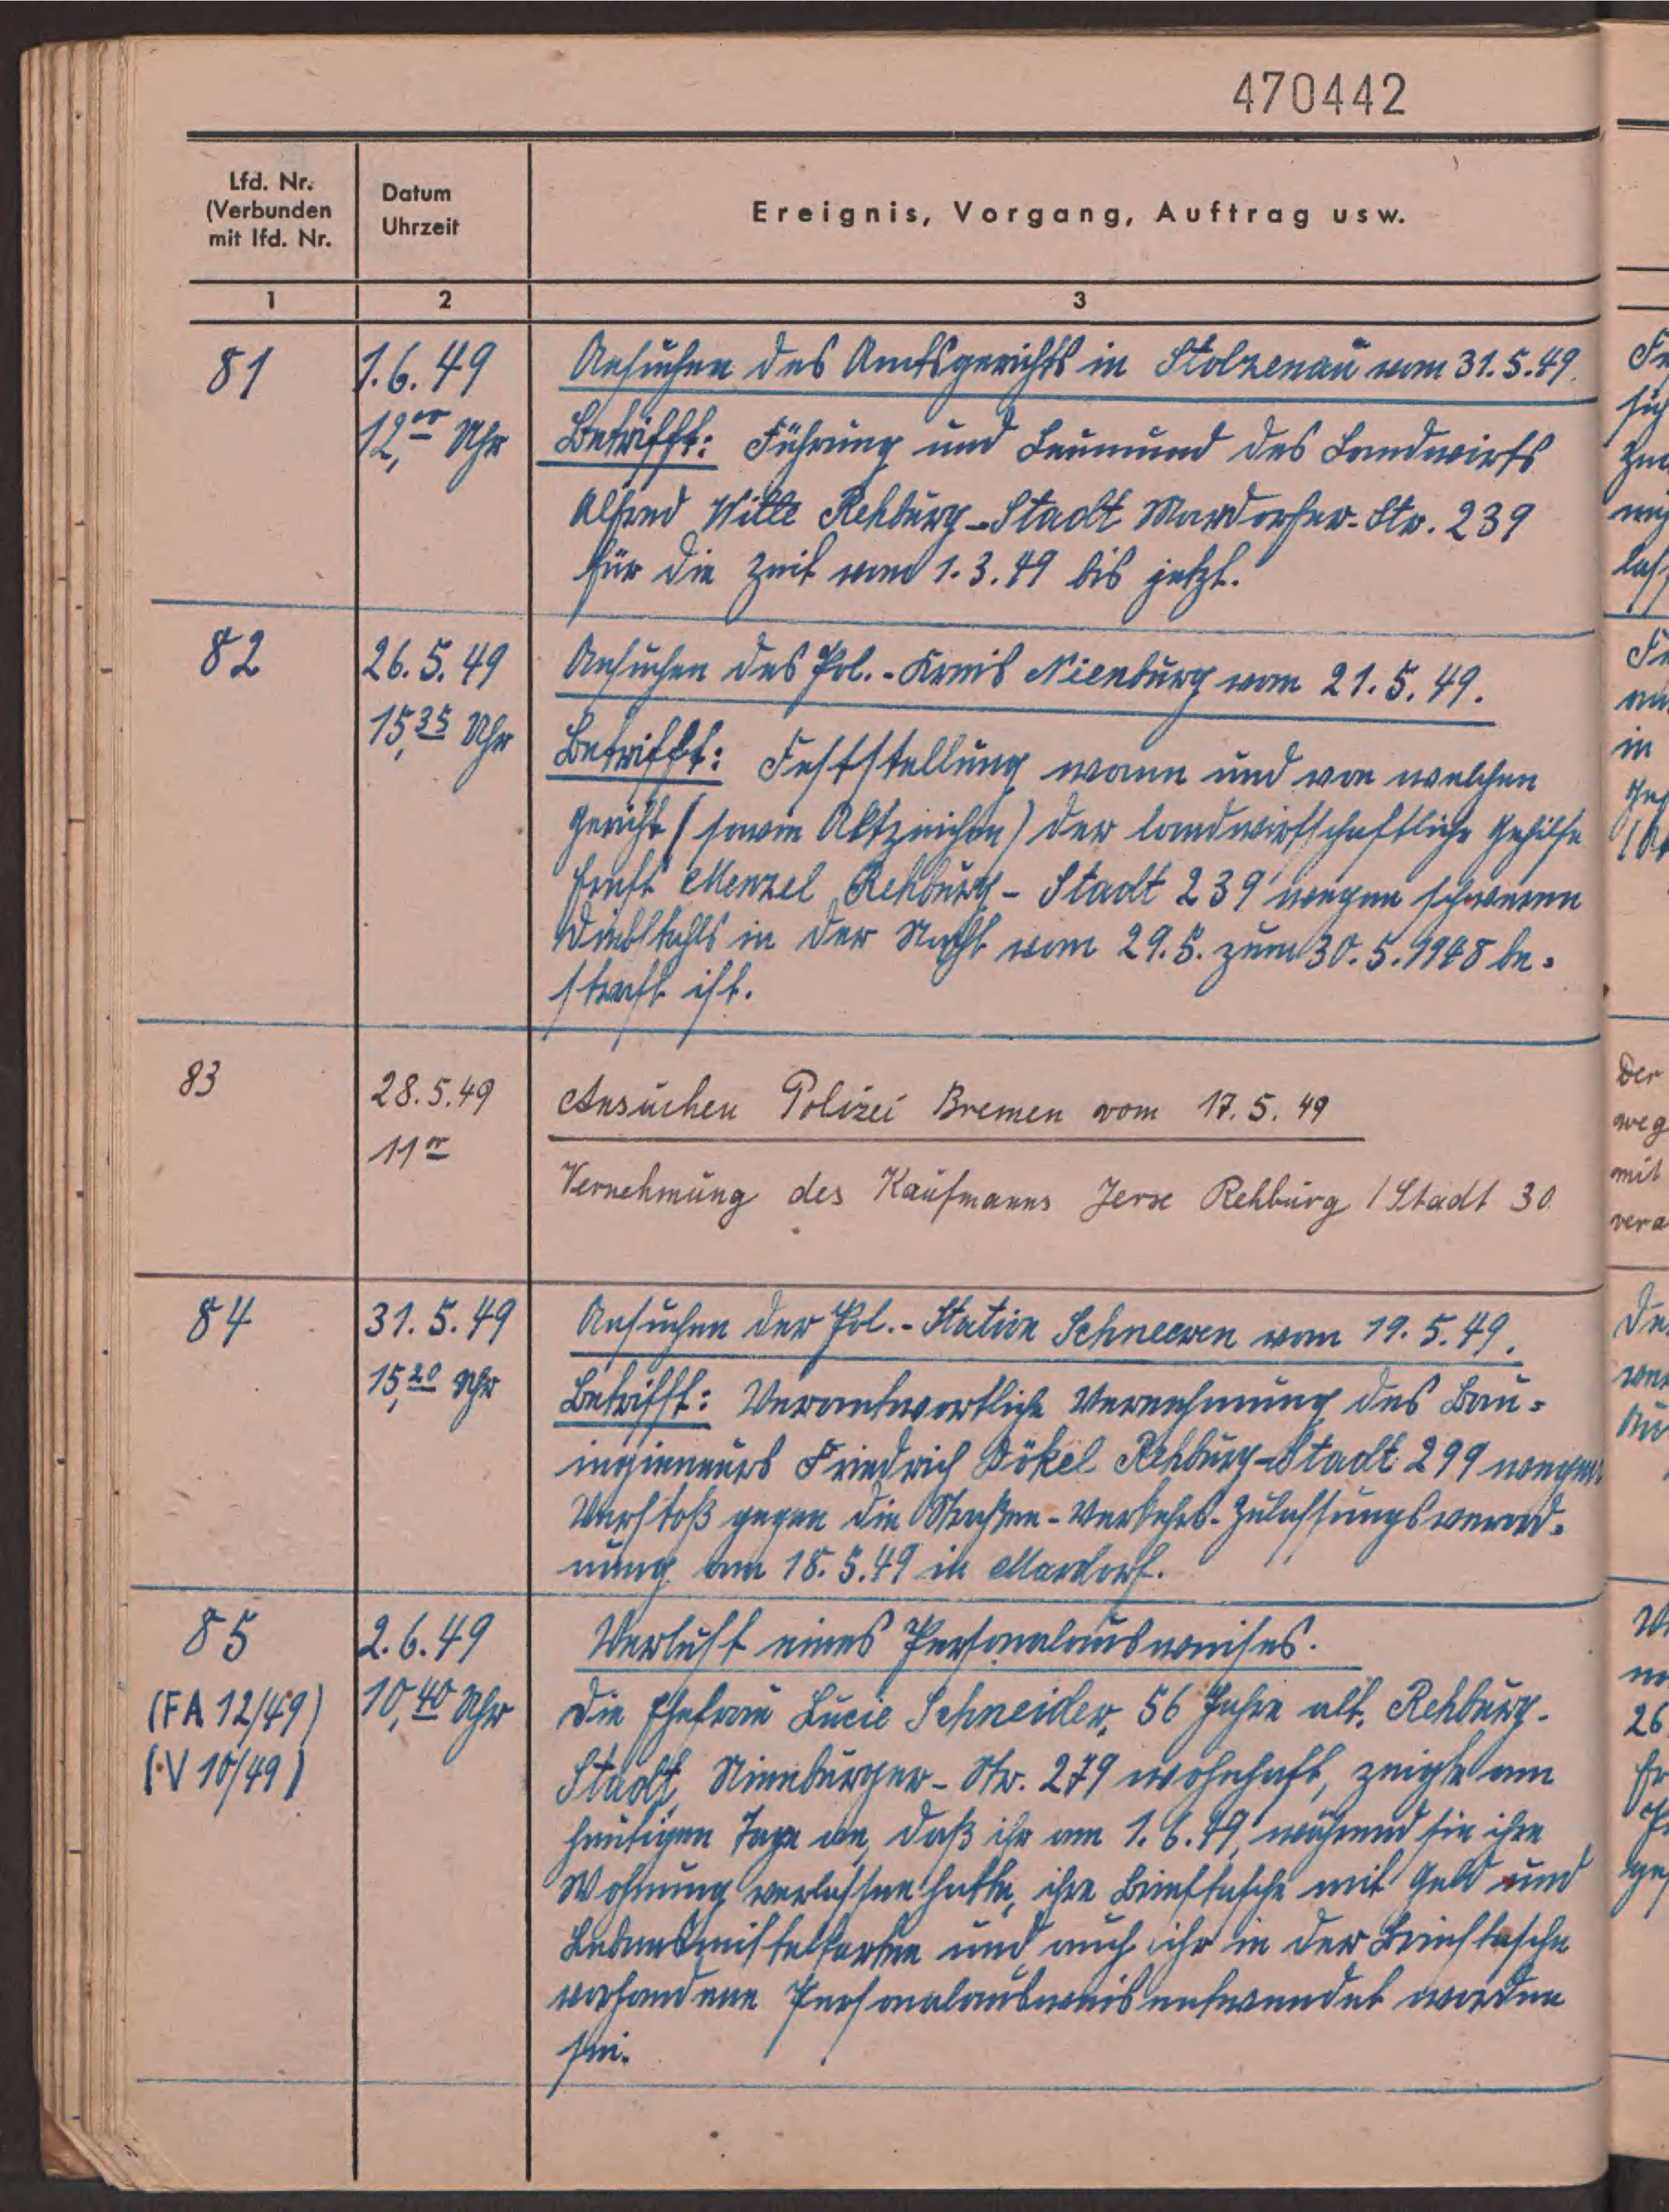 470442
Lfd. Nr.
(Verbunden
mit lfd. Nr.
Datum
Uhrzeit
Ereignis, Vorgang, Auftrag usw.
1 2 3
81 1.6.49 Ansuchen des Amtsgerichts in Stolzenau vom 31.5.49.
12,00 Uhr Betrifft: Führung und Leumund des Landwirts
Alfred Witte Rehburg-Stadt Mardorfer-Str. 239
für die Zeit vom 1.3.49 bis jetzt.
82 26.5.49 Ansuchen des Pol.-Kreis Nienburg vom 21.5.49.
15,35 Uhr Betrifft: Feststellung wann und von welchen
Gericht (sowie Aktzeichen) der landwirtschaftliche Gehilfe
Ernst Menzel Rehburg-Stadt 239 wegen schweren
Diebstahls in der Nacht vom 29.5. zum 30.5.1948 be-
straft ist.
83 28.5.49 Ansuchen Polizei Bremen vom 17.5.49
11 00 Vernehmung des Kaufmanns Jerse Rehburg / Stadt 30
84 31.5.49 Ansuchen der Pol.-Station Schneeren vom 19.5.49.
15,20 Uhr Betrifft: Verantwortliche Vernehmung des Bau-
ingieneurs Friedrich Dökel Rehburg-Stadt 299 wegen
Verstoß gegen die Straßen-Verkehrs-Zulassungsverord-
nung am 18.5.49 in Mardorf.
85 2.6.49 Verlust eines Personalausweises.
(FA 12/49) 10,40 Uhr Die Ehefrau Lucie Schneider, 56 Jahre alt, Rehburg-
(V 10/49) Stadt, Nienburger-Str. 279 wohnhaft, zeigte am
heutigen Tage an, daß ihr am 1.6.49, während sie ihre
Wohnung verlassen hatte, ihre Brieftasche mit Geld und
Lebensmittelkarten und auch ihr in der Brieftasche
vorhandene Personalausweis entwendet worden
sei.
Der
weg
mit
vera
26